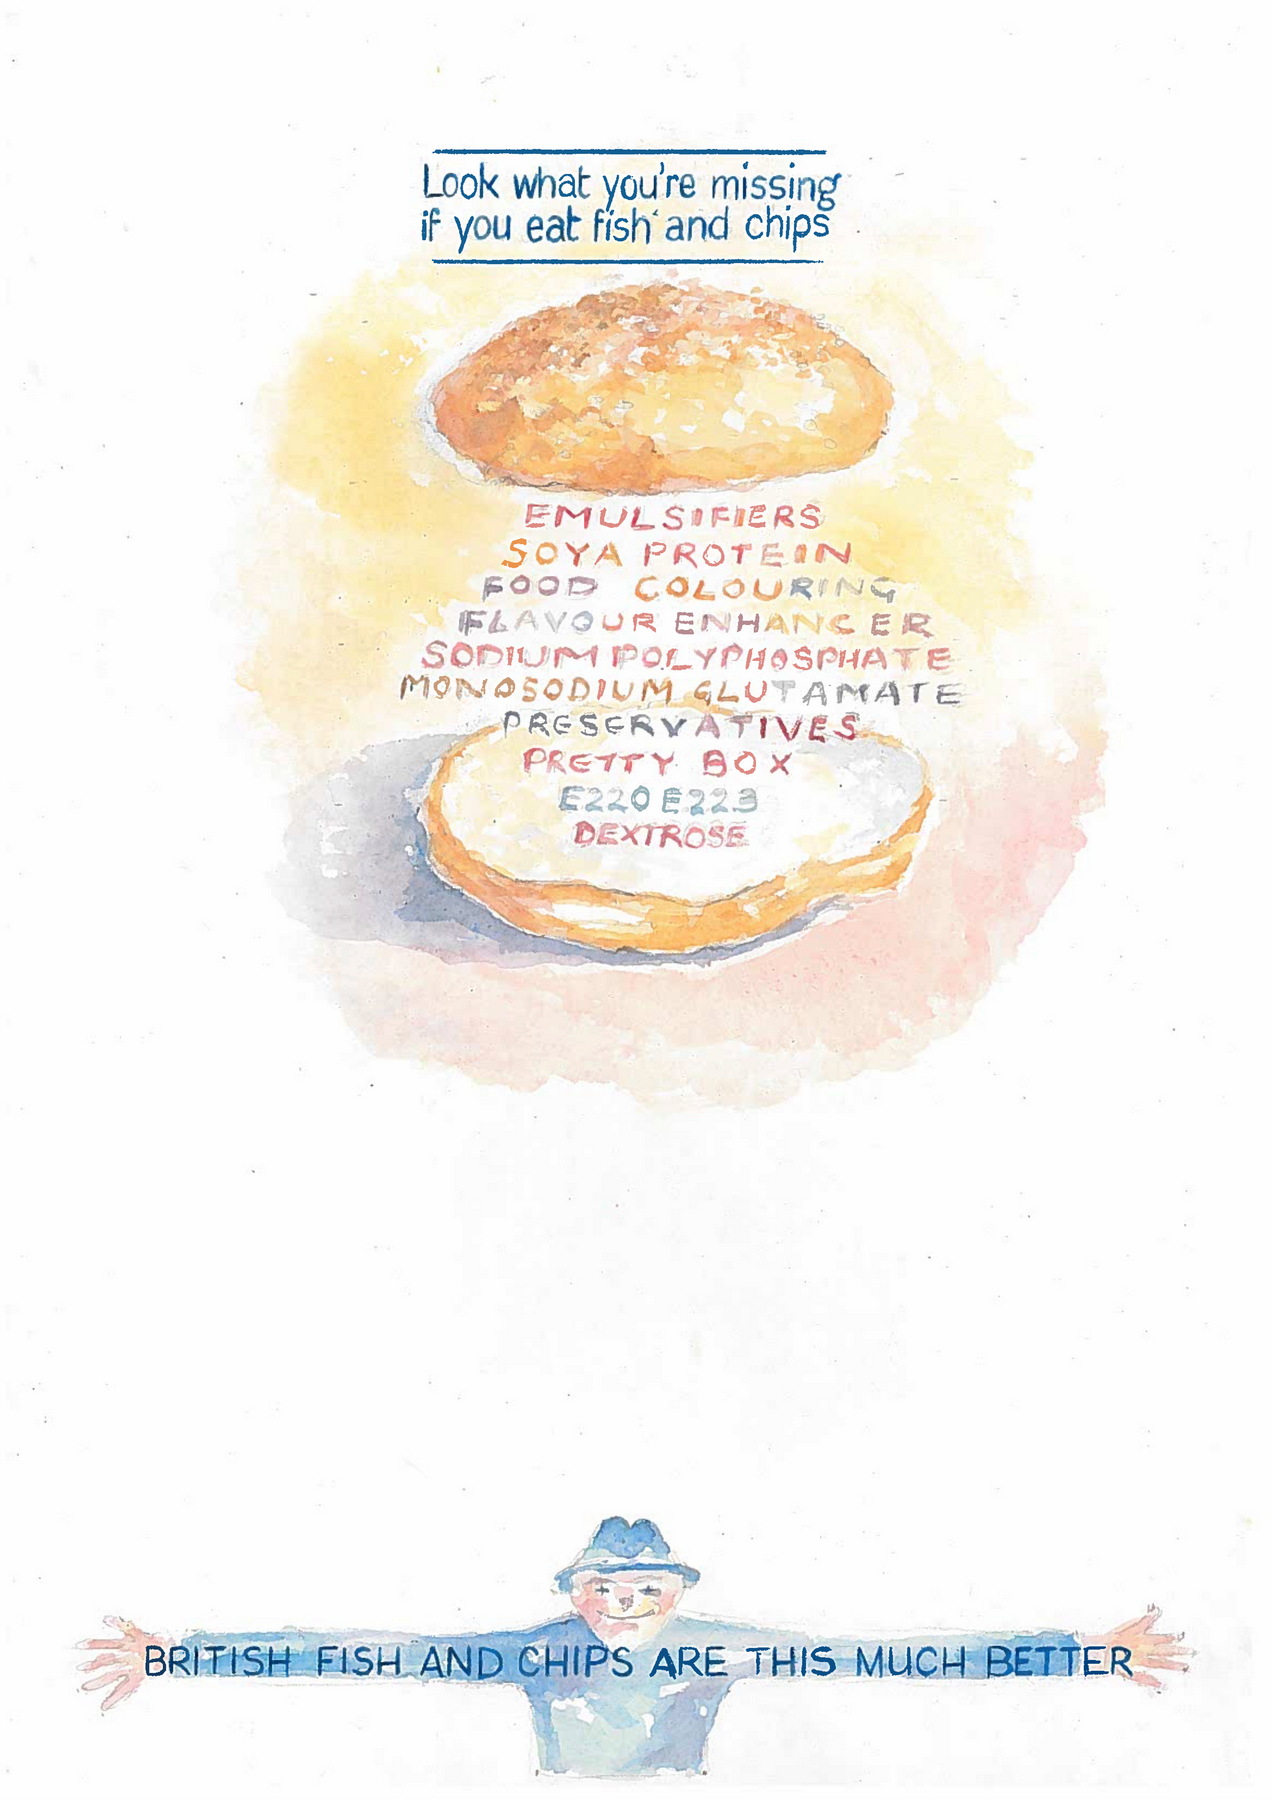 Look what you're missing
if you eat fish and chips
EMULSIFIERS
SOYA PROTEIN
FOOD COLOURING
FLAVOUR ENHANCER
SODIUM POLYPHOSPHATE
MONOSODIUM GLUTAMATE
PRESERVATIVES
PRETTY BOX
E220 E223
DEXTROSE
BRITISH FISH AND CHIPS ARE THIS MUCH BETTER